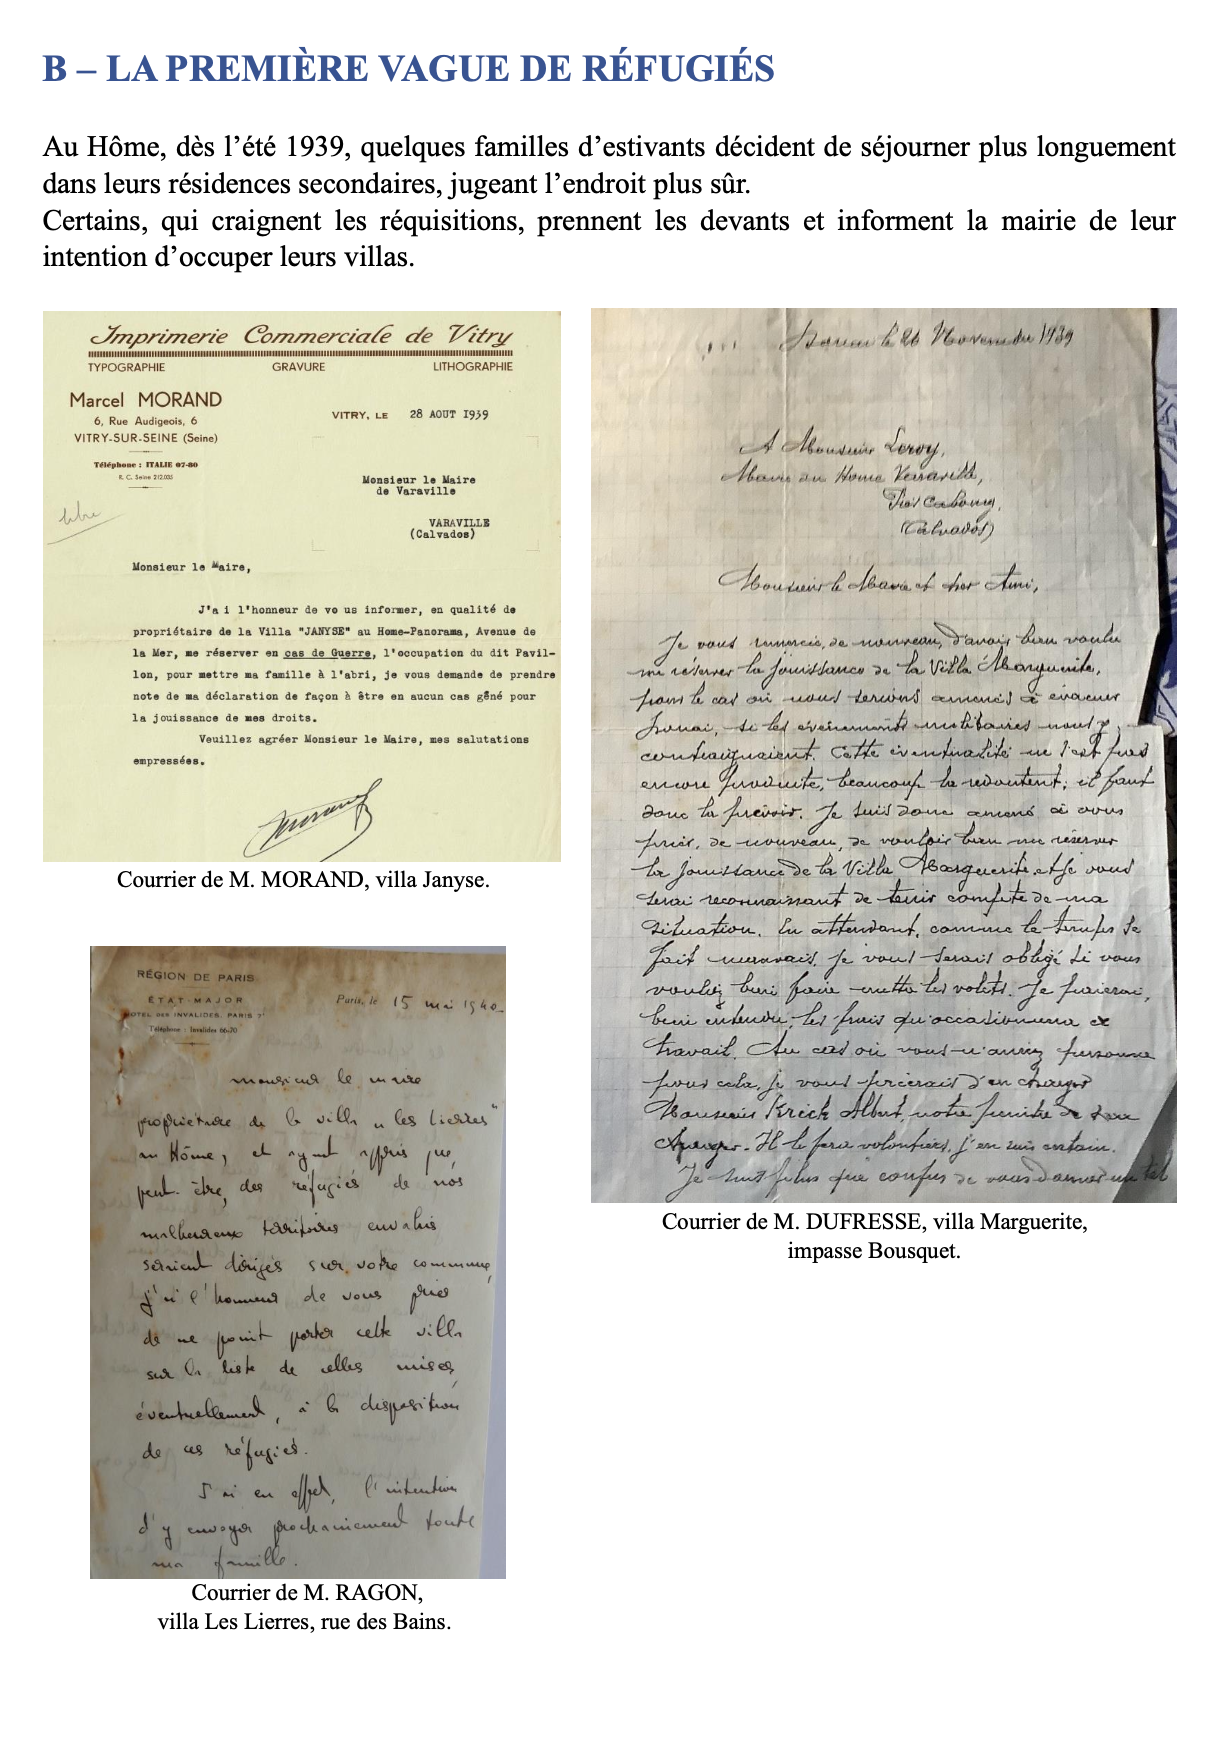 B – LA PREMIÈRE VAGUE DE RÉFUGIÉS
Au Hôme, dès l’été 1939, quelques familles d’estivants décident de séjourner plus longuement
dans leurs résidences secondaires, jugeant l’endroit plus sûr.
Certains, qui craignent les réquisitions, prennent les devants et informent la mairie de leur
intention d’occuper leurs villas.
Imprimerie Commerciale de Vitry
TYPOGRAPHIE GRAVURE LITHOGRAPHIE
Marcel MORAND
6, Rue Audigeois, 6
VITRY-SUR-SEINE (Seine)
Téléphone : ITALIE 07-80
R. C. Seine 212.035
VITRY, LE 28 AOUT 1939
Monsieur le Maire
de Varaville
VARAVILLE
(Calvados)
libre
Monsieur le Maire,
J'a i l'honneur de vo us informer, en qualité de
propriétaire de la Villa "JANYSE" au Home-Panorama, Avenue de
la Mer, me réserver en cas de Guerre, l'occupation du dit Pavil-
lon, pour mettre ma famille à l'abri, je vous demande de prendre
note de ma déclaration de façon à être en aucun cas gêné pour
la jouissance de mes droits.
Veuillez agréer Monsieur le Maire, mes salutations
empressées.
Morand
Courrier de M. MORAND, villa Janyse.
RÉGION DE PARIS
ÉTAT-MAJOR
HOTEL DES INVALIDES, PARIS 7e
Téléphone : Invalides 66-70
Paris, le 15 mai 1940
Monsieur le maire
propriétaire de la villa "les Lierres"
au Hôme, et ayant appris que,
peut-être, des réfugiés de nos
malheureux territoires envahis
seraient dirigés sur votre commune,
j'ai l'honneur de vous prier
de ne point porter cette villa
sur la liste de celles mises,
éventuellement, à la disposition
de ces réfugiés.
J'ai en effet, l'intention
d'y envoyer prochainement toute
ma famille.
Courrier de M. RAGON,
villa Les Lierres, rue des Bains.
Douai le 26 Novembre 1939
A Monsieur Leroy,
Maire au Home Varaville,
Près Cabourg,
(Calvados)
Monsieur le Maire et cher Ami,
Je vous remercie, de nouveau, d'avoir bien voulu
me réserver la jouissance de la Villa Marguerite,
pour le cas où nous serions amenés à évacuer
Douai, si les événements militaires nous y
contraignaient. Cette éventualité ne s'est pas
encore produite, beaucoup la redoutent; il faut
donc la prévoir. Je suis donc amené à vous
prier, de nouveau, de vouloir bien me réserver
la jouissance de la Villa Marguerite et je vous
serai reconnaissant de tenir compte de ma
situation. En attendant, comme le temps se
fait mauvais, je vous serais obligé si vous
vouliez bien faire mettre les volets. Je paierai,
bien entendu, les frais qu'occasionnera ce
travail. Au cas où vous n'auriez personne
pour cela, je vous prierais d'en charger
Monsieur Krick Albert, notre peintre de
Il le fera volontiers, j'en suis certain.
Je suis plus que confus de vous donner un tel
Courrier de M. DUFRESSE, villa Marguerite,
impasse Bousquet.